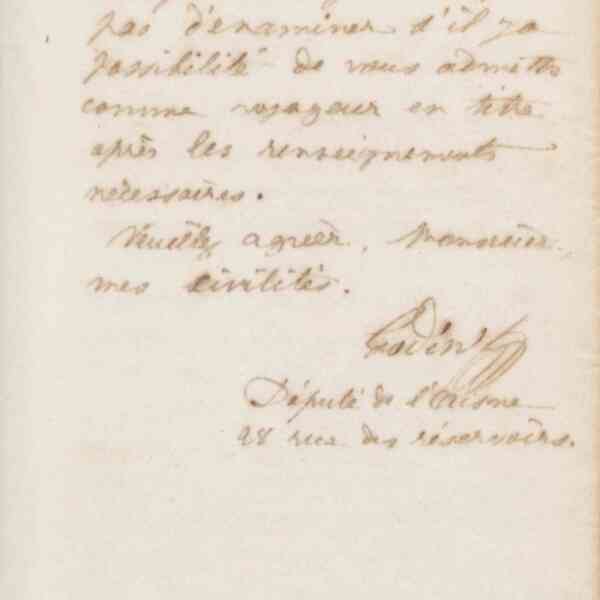 pas d'examiner s'il y a
possibilité de vous admettre
comme voyageur en titre
après les renseignements
nécessaires.
Veuillez agréer, Monsieur,
mes civilités.
Godin
Député de l'Aisne
28 rue des réservoirs.